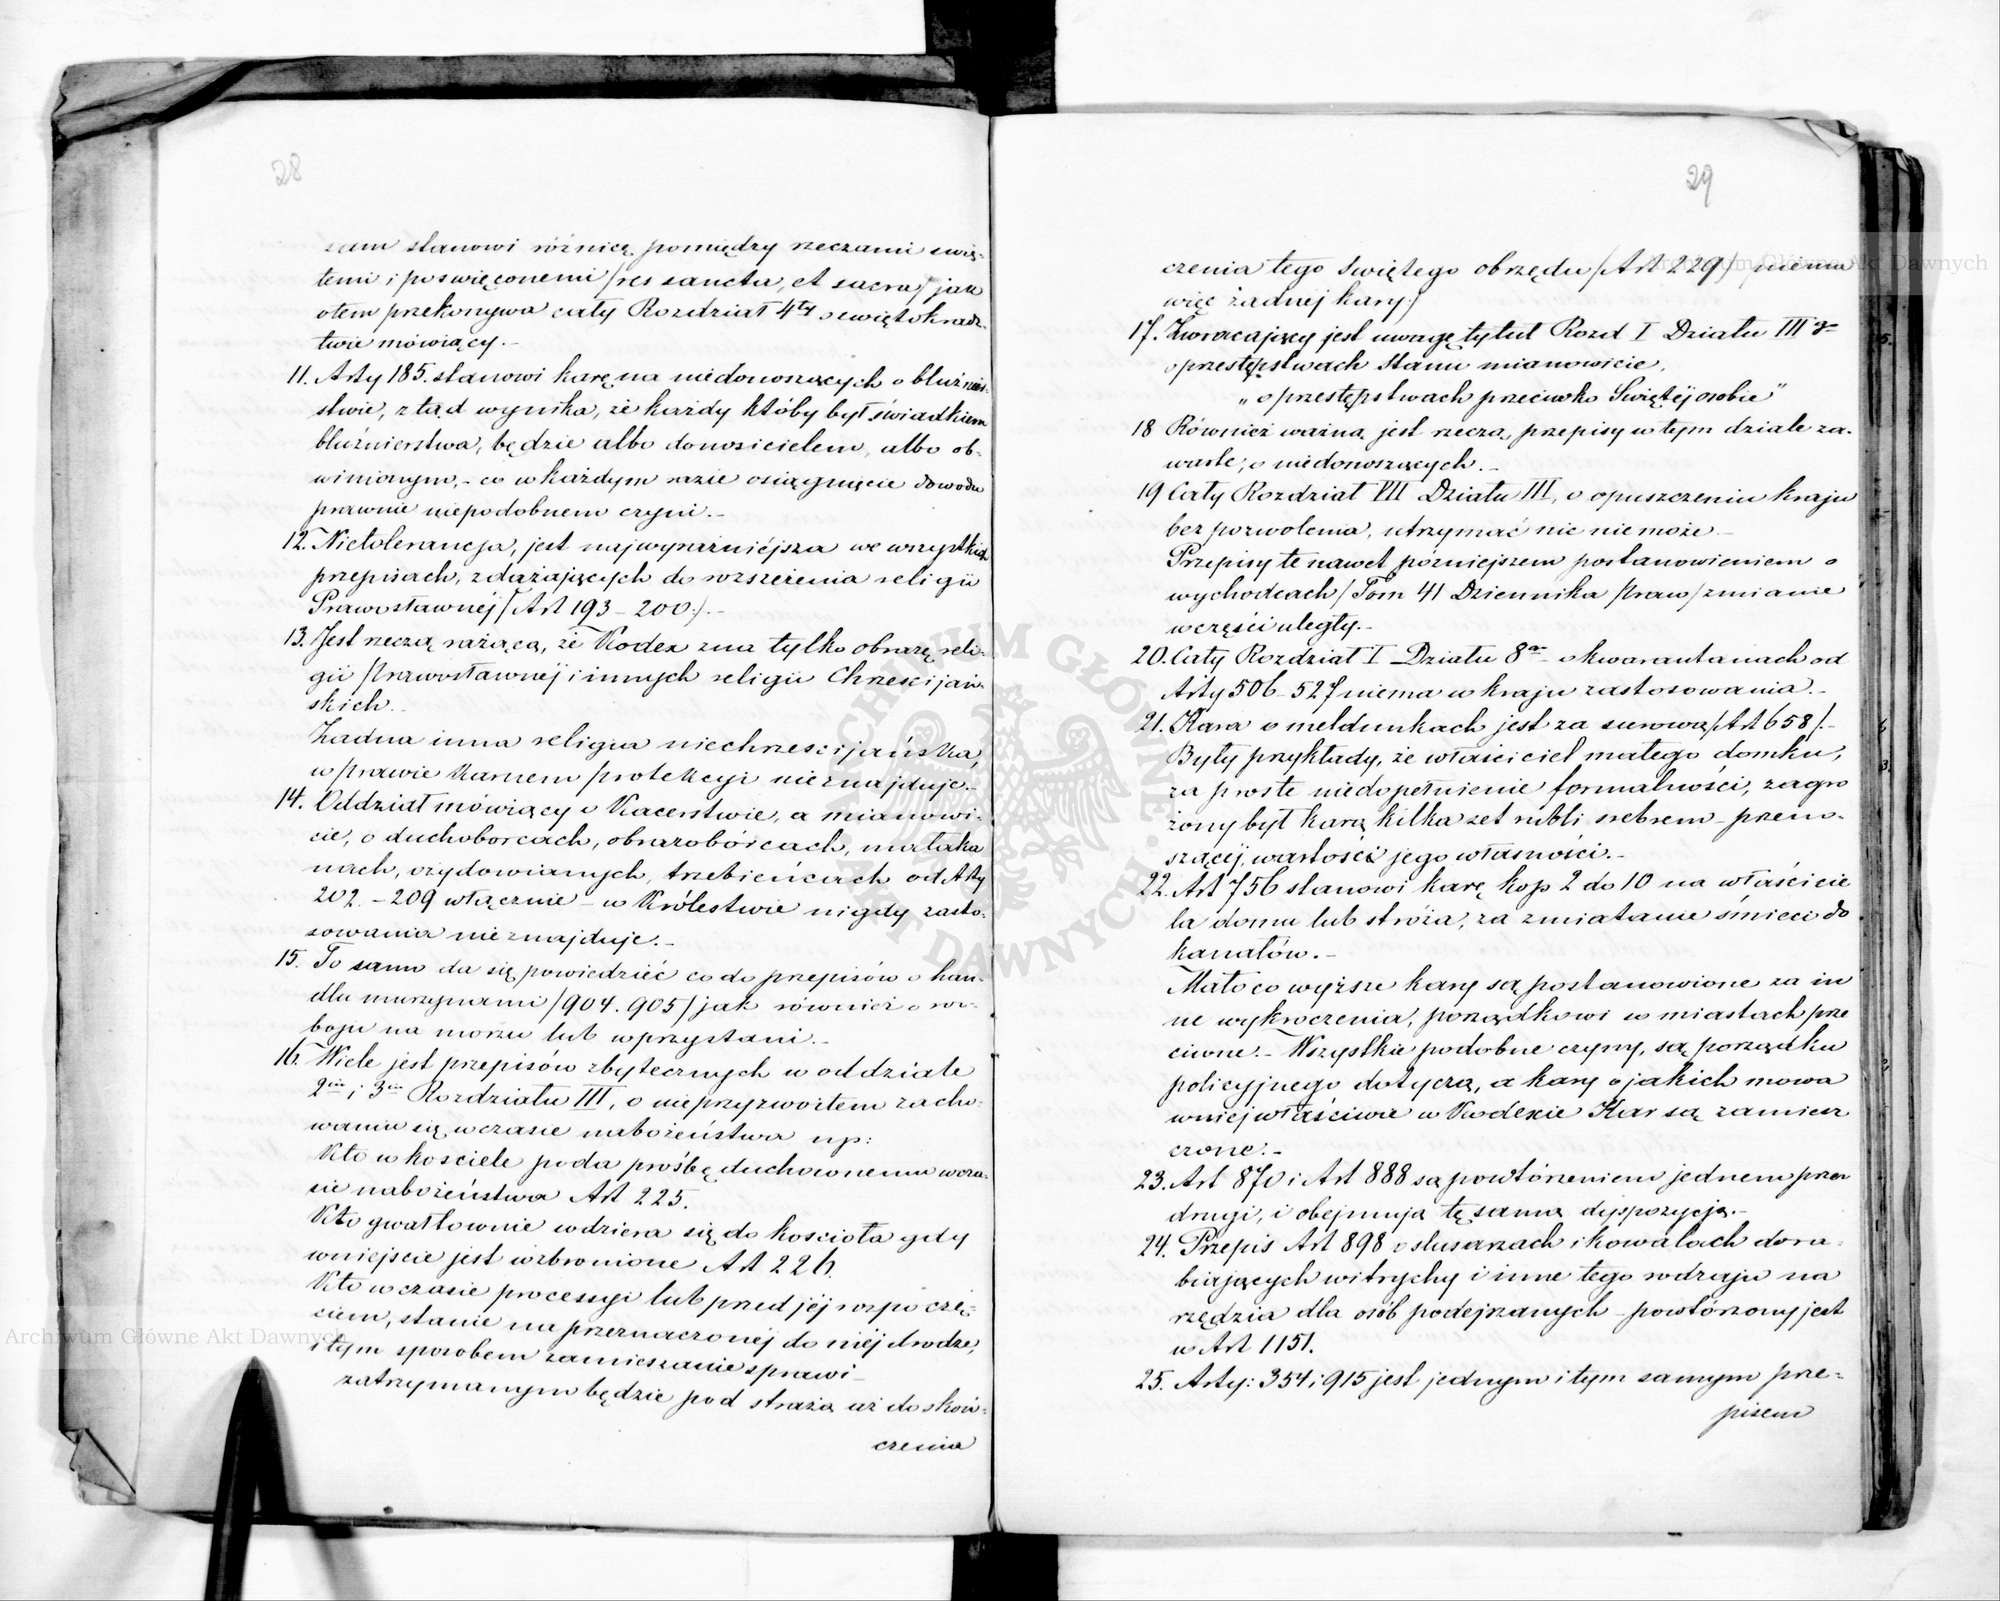 28
sam stanowi różnicę pomiędzy rzeczami świę-
temi i poświęconemi /res sancta, et sacra/ jak
otem przekonywa cały Rozdział 4ty o świętokradz-
twie mówiący.-
11. Arty 185. stanowi karę na niedonoszących o bluźnier-
stwie, ztąd wynika, że każdy któby był świadkiem
bluźnierstwa, będzie albo donosicielem, albo ob-
winionym,- co w każdym razie osiągnięcie dowodu
prawnie niepodobnem czyni.-
12. Nietolerancja, jest najwyraźniéjsza we wszystkich
przepisach, zdążających do rozszeżenia religii
Prawosławnéj /Art 193-200./.-
13. Jest rzeczą rażącą, że Kodex zna tylko obrazę reli-
gii prawosławnéj i innych religii Chrześcijań-
skich.-
Żadna inna religia niechrześcijańska,
w prawie karnem protekcyi nieznajduje.-
14. Oddział mówiący o Kacerstwie, a mianowi-
cie, o duchoborcach, obrazobórcach, małaka
nach, ożydowianych, trzebieńcach od Arty
202.-209 włącznie - w Królestwie nigdy zasto-
sowania nieznajduje.-
15. To samo da się powiedzieć co do przepisów o han-
dlu murzynami /904. 905/ jak również o roz-
boju na morzu lub w przystani.-
16. Wiele jest przepisów zbytecznych w oddziale
2im i 3im Rozdziału III, o nieprzyzwoitem zacho-
waniu się w czasie nabożeństwa np:
Kto w kościele poda prośbę duchownemu w cza-
sie nabożeństwa Art 225.
Kto gwałtownie wdziera się do kościoła gdy
wniejście jest wzbronione Art 226.
Kto w czasie processyi lub przed jéj rozpoczę-
ciem, stanie na przeznaczonéj do niéj drodze,
i tym sposobem zamieszanie sprawi-
zatrzymanym będzie pod strażą aż do skoń-
czenia
29
czenia tego świętego obrzędu /Art 229/ niema
więc żadnéj kary./
17. Zwracający jest uwagę tytuł Rozd I Działu III go
o przestępstwach stanu mianowicie,
„o przestępstwach przeciwko Świętéj osobie"
18 Również ważną jest rzeczą, przepisy w tym dziale za-
warte, o niedonoszących.-
19 Cały Rozdział VII Działu III, o opuszczeniu kraju
bez pozwolenia, utrzymać nie niemoże.-
Przepisy te nawet późniejszem postanowieniem o
wychodcach /Tom 41 Dziennika praw/ zmianie
w części uległy.-
20. Cały Rozdział I Działu 8go o kwarantanach od
Arty 506-527 niema w kraju zastosowania.-
21. Kara o meldunkach jest za surowa /Art 658/.-
Były przykłady, że właściciel małego domku,
za proste niedopełnienie formalności, zagro
żony był karą kilkaset rubli srebrem przeno-
szącéj, wartości jego własności.-
22. Art 756 stanowi karę kop 2 do 10 na właścicie
la domu lub stróża, za zmiatanie śmieci do
kanałów.-
Mało co wyższe kary są postanowione za in
ne wykroczenia, porządkowi w miastach prze
ciwne.- Wszystkie podobne czyny, są porządku
policyjnego dotyczą, a kary o jakich mowa
wniejwłaściwie w Kodexie Kar są zamiesz
czone.-
23. Art 870 i Art 888 są powtórzeniem jednem prze
drugi, i obejmują tę samą dyspozycją.-
24. Przepis Art 898 o ślusarzach i kowalach dora-
biających witrychy i inne tego rodzaju na
rzędzia dla osób podejrzanych - powtórzony jest
w Art 1151.
25. Arty: 354 i 915 jest jednym i tym samym prze-
pisem
ARCHIWUM GŁÓWNE AKT DAWNYCH
Archiwum Główne Akt Dawnych
Archiwum Główne Akt Dawnych